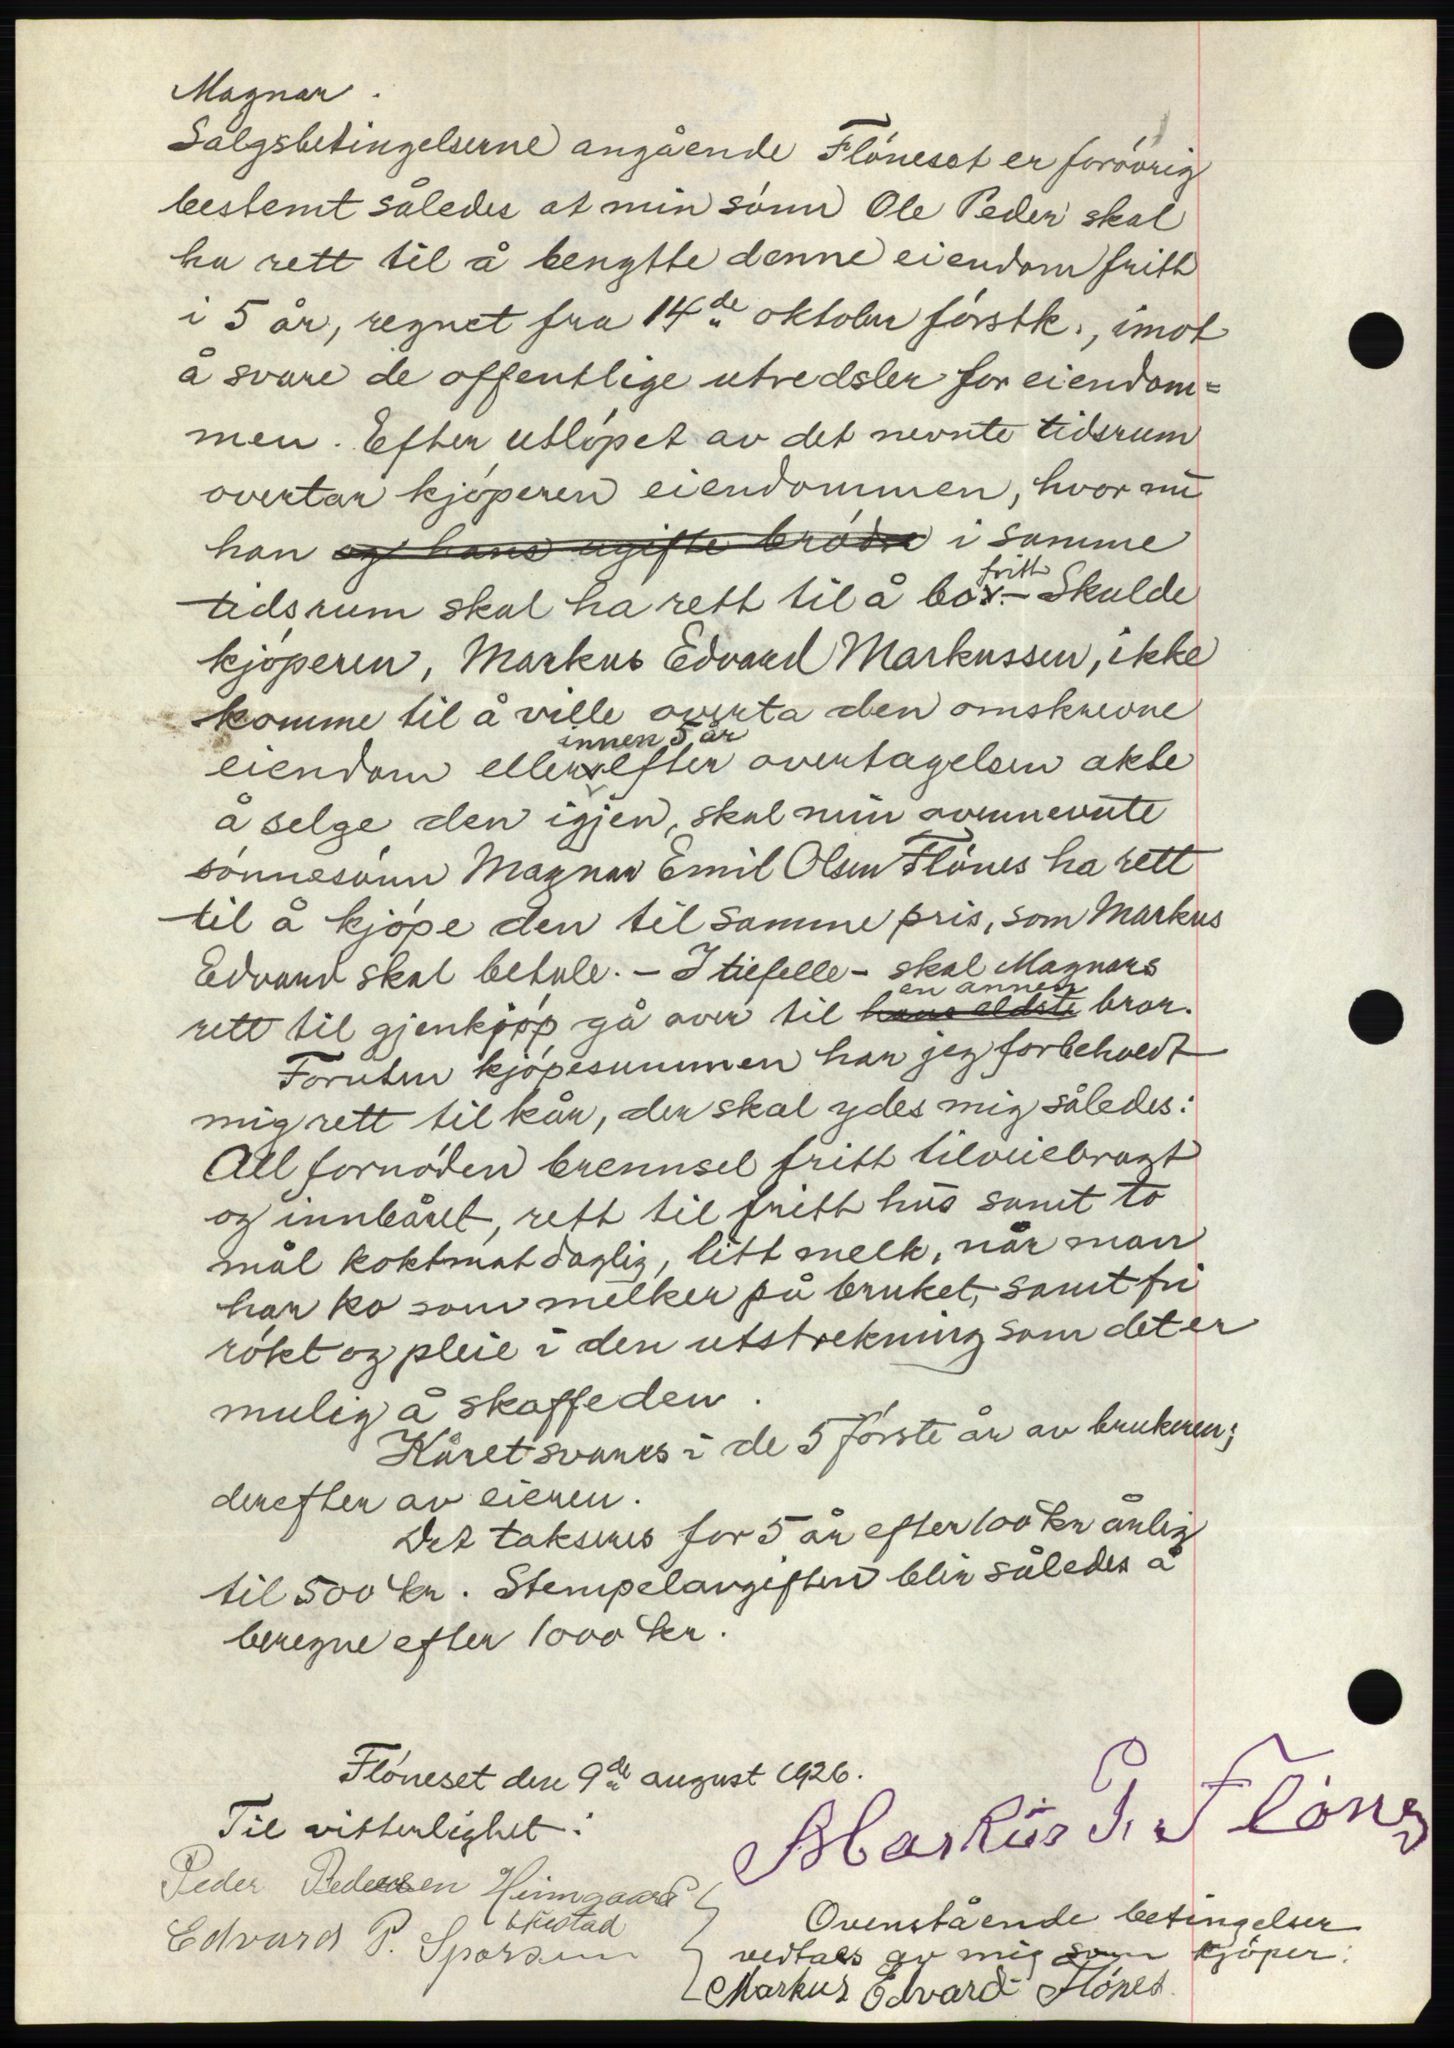 Magnar.
Salgsbetingelserne angående Flóneset er foróvrig
bestemt således at min sónn Ole Peder skal
ha rett til å benytte denne eiendom fritt
i 5 år, regnet fra 14de oktober fórstk., imot
å svare de offentlige utredsler for eiendom=
men. Efter utlópet av det nevnte tidsrum
overtar kjóperen eiendommen, hvor nu
han og hans ugifte bródre i samme
tidsrum skal ha rett til å bo fritt. – Skulde
kjóperen, Markus Edvard Markussen, ikke
komme til å ville overta den omskrevne
eiendom eller innen 5 år efter overtagelsen akte
å selge den igjen, skal min ovennevnte
sónnesónn Magnar Emil Olsen Flónes ha rett
til å kjópe den til samme pris, som Markus
Edvard skal betale. – I tilfelle – skal Magnars
rett til gjenkjóp gå over til hans eldste en annen bror.
Foruten kjópesummen har jeg forbeholdt
mig rett til kår, der skal ydes mig således:
All fornóden brennsel fritt tilveiebragt
og innbåret, rett til fritt hus samt to
mål koktmat daglig, litt melk, når man
har ko som melker på bruket, samt fri
rókt og pleie i den utstrekning som det er
mulig å skaffe den.
Kåret svares i de 5 fórste år av brukeren;
derefter av eieren.
Det takseres for 5 år efter 100 kr årlig
til 500 kr. Stempelavgiften blir således å
beregne efter 1000 kr.
Flóneset den 9de august 1926.
Til vitterlighet:
Markus P. Flónes
Peder Pedersen Heimgaard
Edvard P. Sporsem
Ovenstående betingelser
vedtaes av mig som kjóper:
Markus Edvard Flónes.